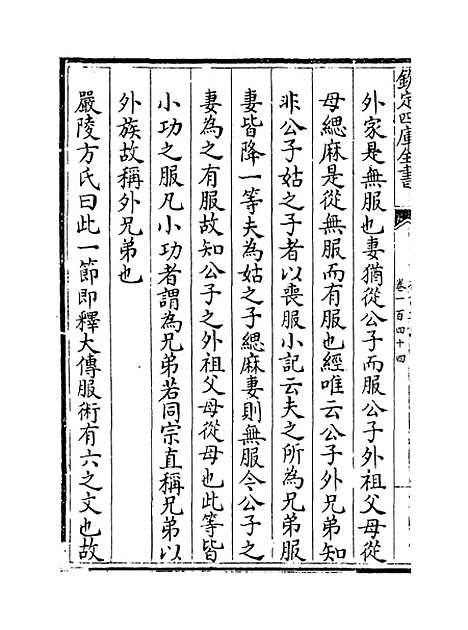 欽定四庫全書
卷一百四十四
外家是無服也妻猶從公子而服公子外祖父母從
母緦麻是從無服而有服也經唯云公子外兄弟知
非公子姑之子者以喪服小記云夫之所為兄弟服
妻皆降一等夫為姑之子緦麻妻則無服今公子之
妻為之有服故知公子之外祖父母從母也此等皆
小功之服凡小功者謂為兄弟若同宗直稱兄弟以
外族故稱外兄弟也
嚴陵方氏曰此一節即釋大傳服術有六之文也故